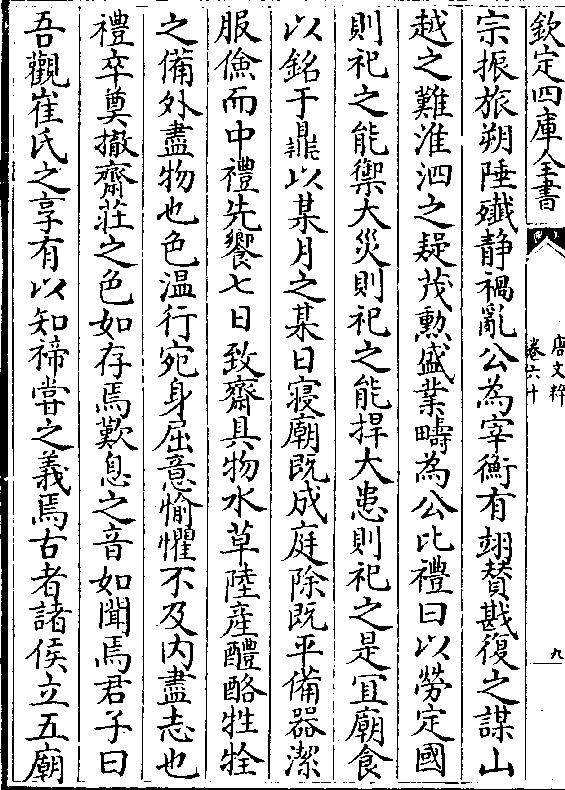 欽定四庫全書
唐文粹
卷六十
九
宗振旅朔陲殲静禍亂公為宰衡有翊賛戡復之謀山
越之難淮泗之疑茂勲盛業疇為公比禮曰以勞定國
則祀之能禦大災則祀之能捍大患則祀之是宜廟食
以銘于鼎以某月之某日寝廟既成庭除既平備器潔
服儉而中禮先饗七日致齋具物水草陸産醴酪牲牷
之備外盡物也色温行宛身屈意愉懼不及内盡志也
禮卒奠撤齋莊之色如存焉歎息之音如聞焉君子曰
吾觀崔氏之享有以知禘甞之義焉古者諸侯立五廟